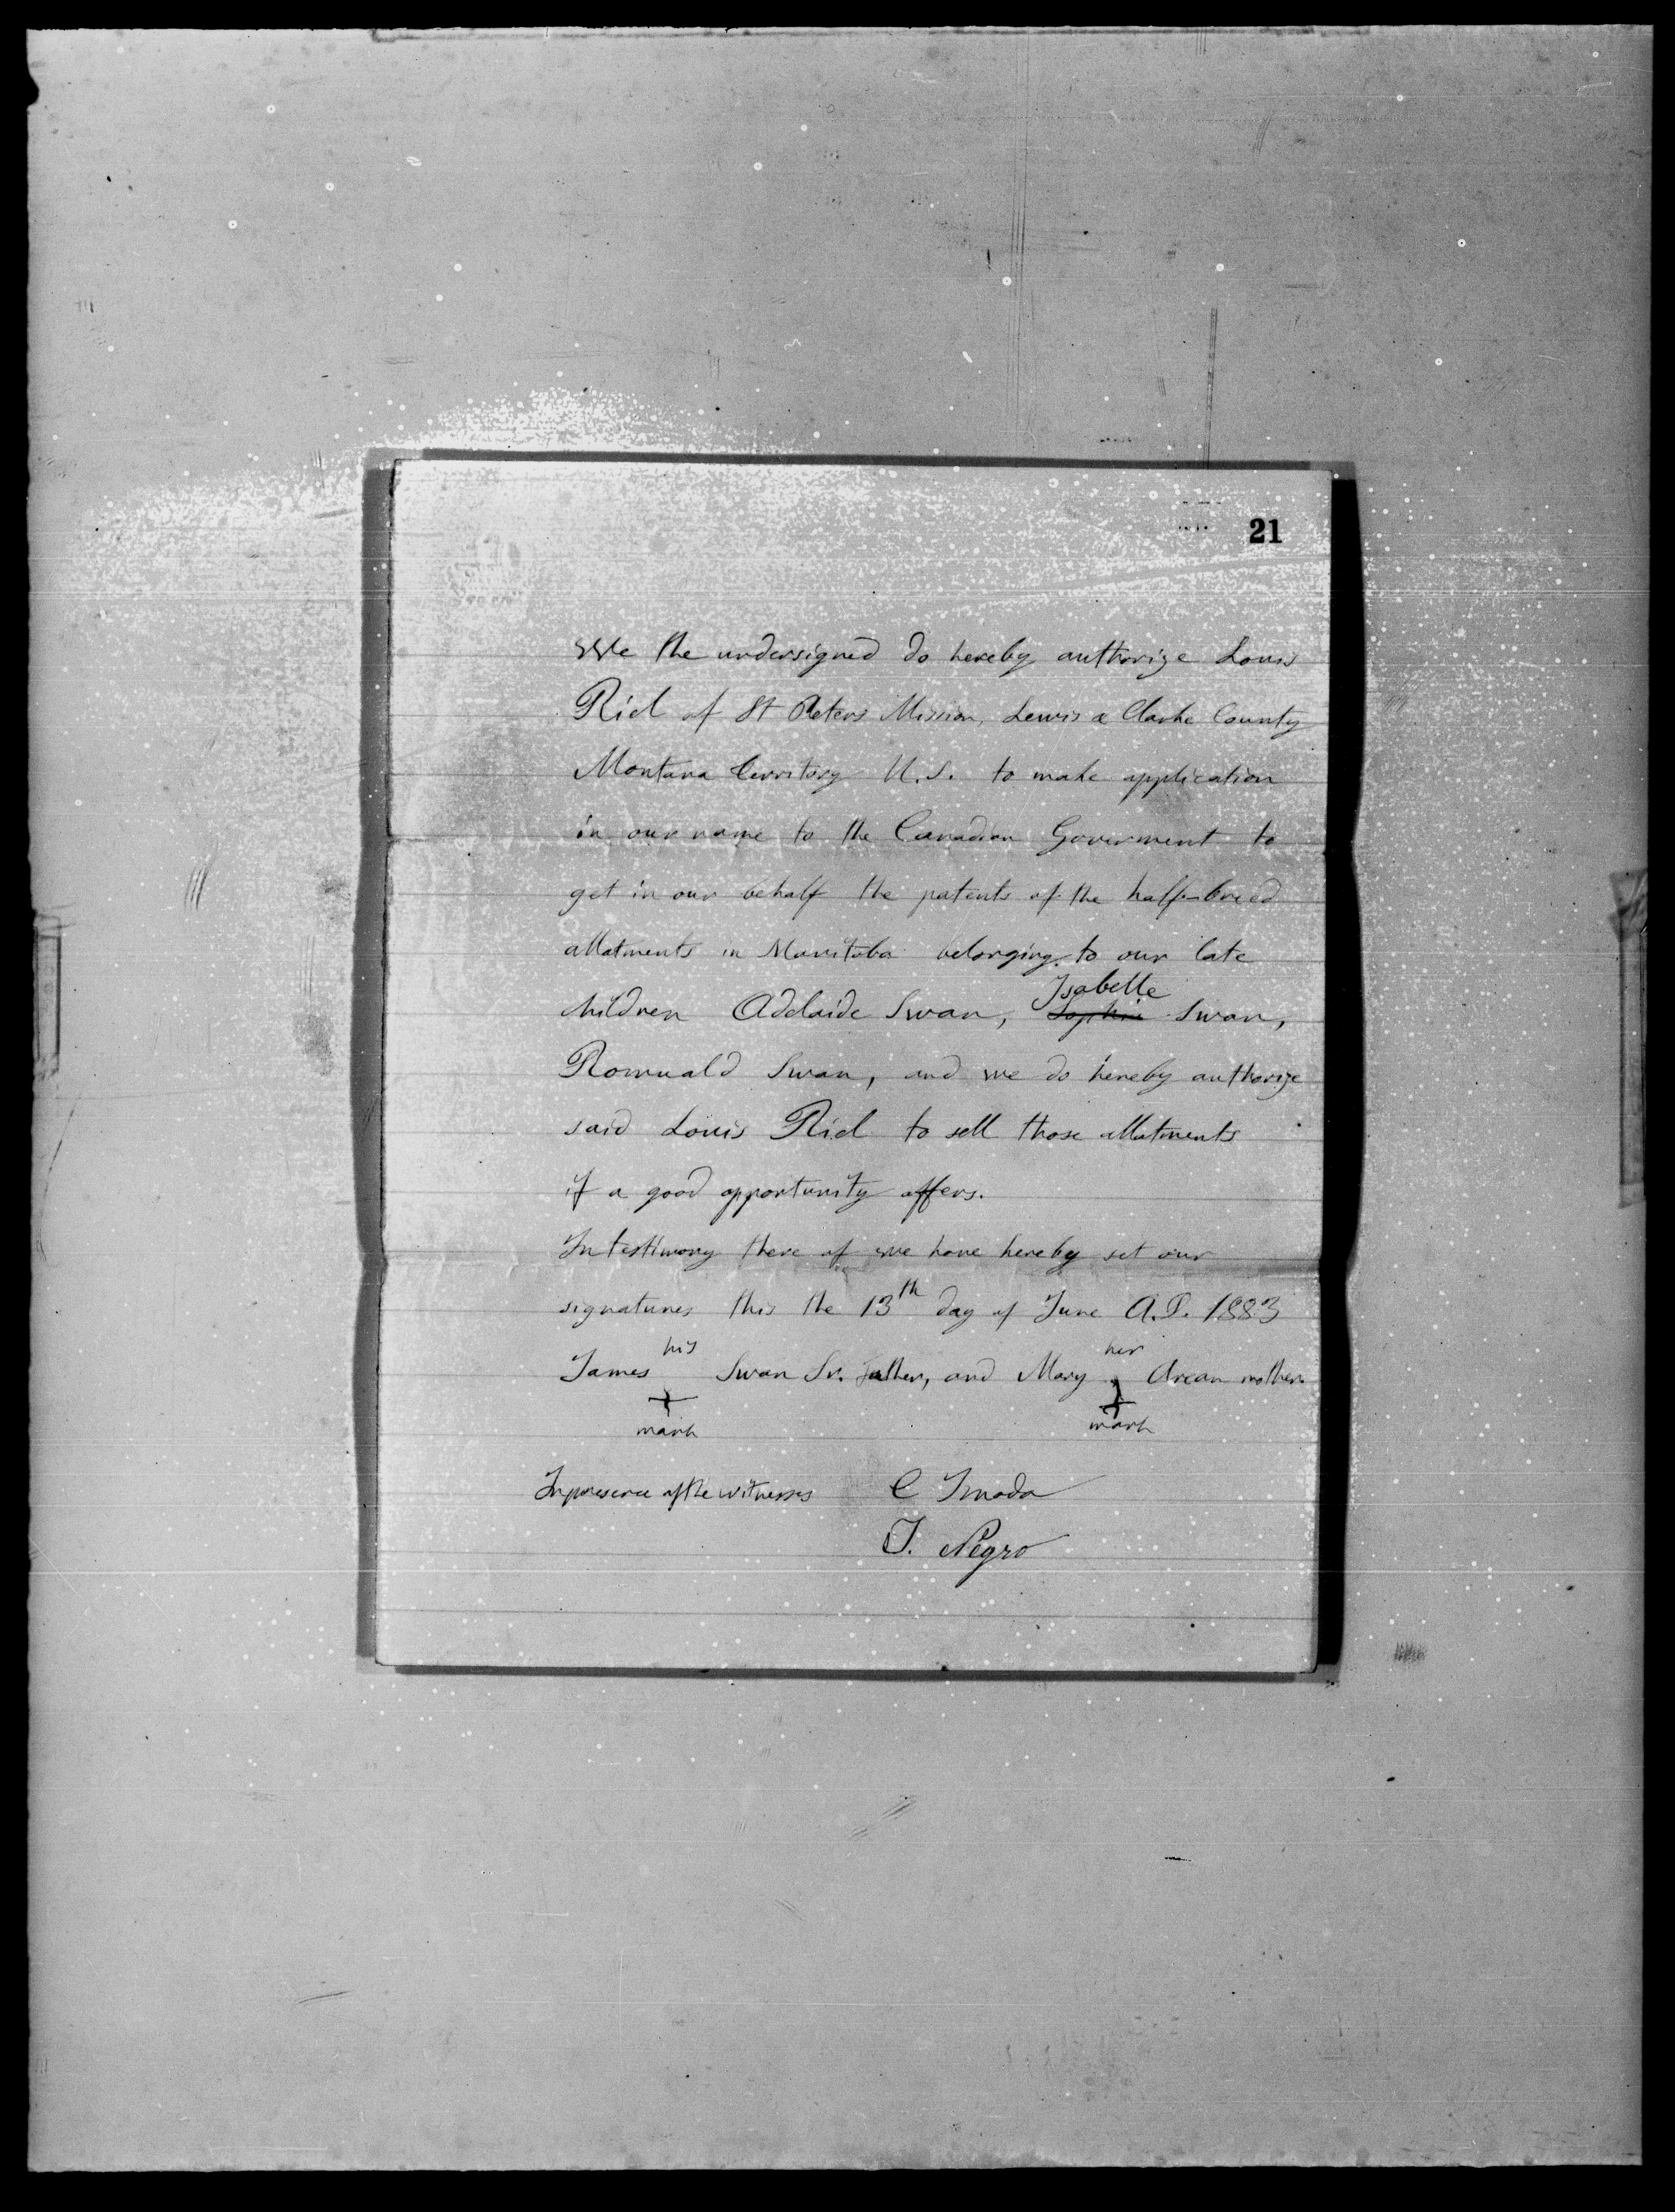 21
We the undersigned do hereby authorize Louis
Riel of St Peters Mission, Lewis & Clarke County
Montana Territory U.S. to make application
in our name to the Canadian Goverment to
get in our behalf the patents of the half-breed
allotments in Manitoba belonging to our late
Isabelle
children Adelaide Swan, Sophie Swan,
Romuald Swan, and we do hereby authorize
said Louis Riel to sell those allotments
if a good opportunity offers.
In testimony there of we have hereby set our
signatures this the 13th day of June A.D. 1883
his her
James Swan Sr. father, and Mary Arcan mother
mark mark
In presence of the witnesses C Imoda
J. Negro